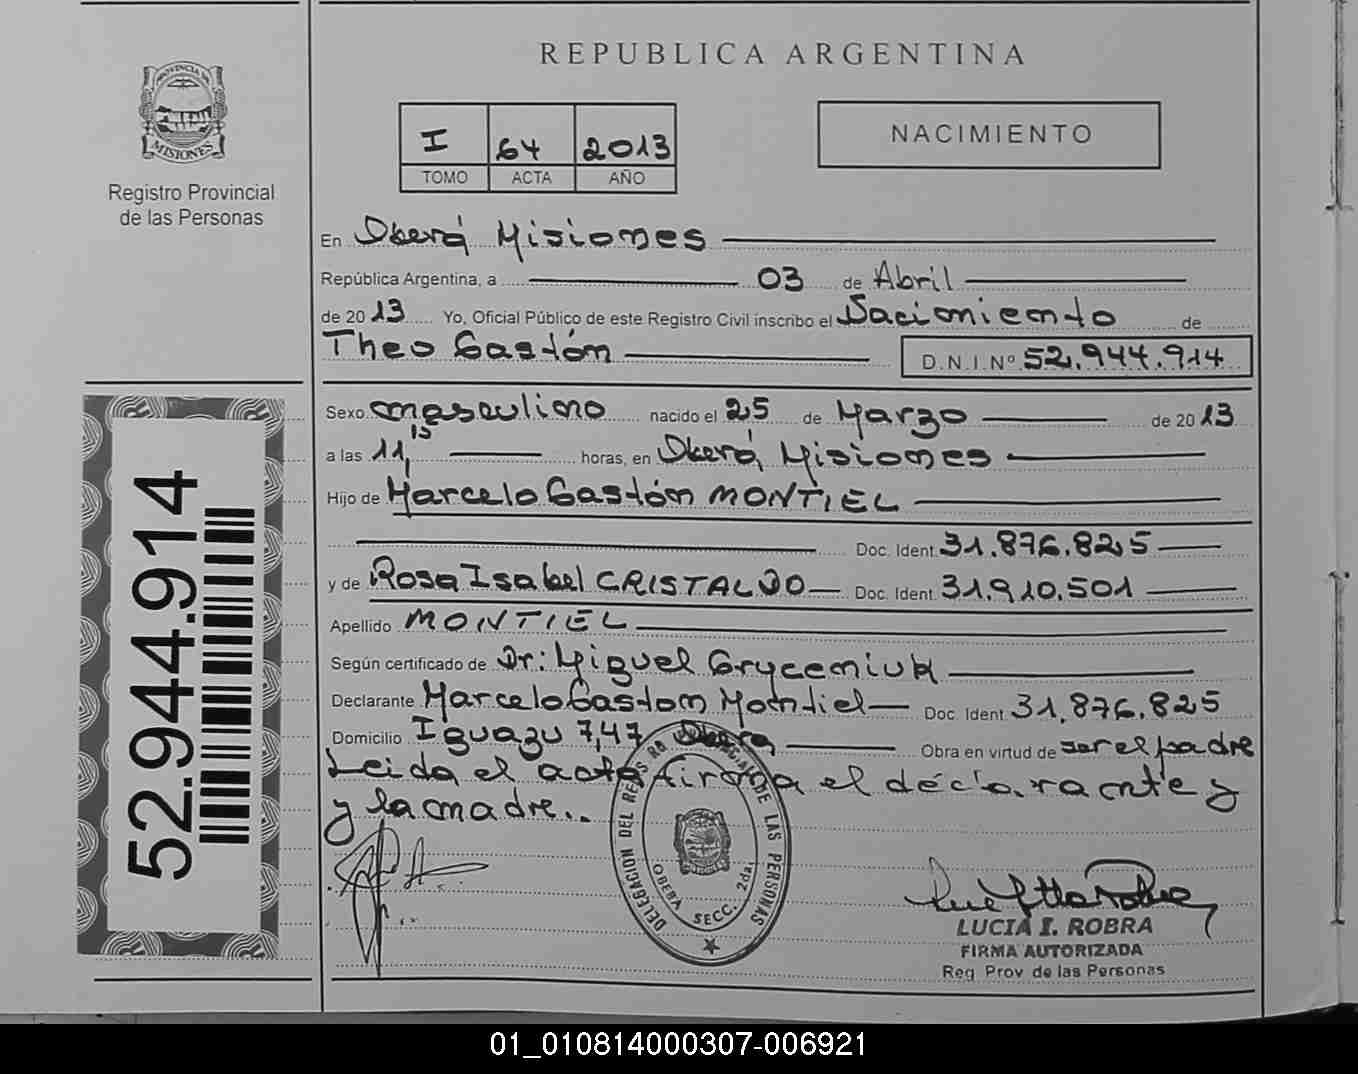 REPUBLICA ARGENTINA
PROVINCIA DE
MISIONES
Registro Provincial
de las Personas
I 64 2013
TOMO ACTA AÑO
NACIMIENTO
En Oberá Misiones
República Argentina, a 03 de Abril
de 2013 Yo, Oficial Público de este Registro Civil inscribo el Nacimiento de
Theo Gastón D.N.I.Nº 52.944.914
Sexo masculino nacido el 25 de Marzo de 2013
a las 11,15 horas, en Oberá, Misiones
Hijo de Marcelo Gastón MONTIEL
Doc. Ident. 31.876.825
y de Rosa Isabel CRISTALDO Doc. Ident. 31.910.501
Apellido MONTIEL
Según certificado de Dr: Miguel Gryceniuk
Declarante Marcelo Gaston Montiel Doc. Ident. 31.876.825
Domicilio Iguazu 747 Obera Obra en virtud de ser el padre
Leida el acta firma el declarante y
y la madre..
52.944.914
DELEGACION DEL DE LAS PERSONAS
OBERA SECC. 2da.
LUCIA I. ROBRA
FIRMA AUTORIZADA
Reg Prov de las Personas
01_010814000307-006921